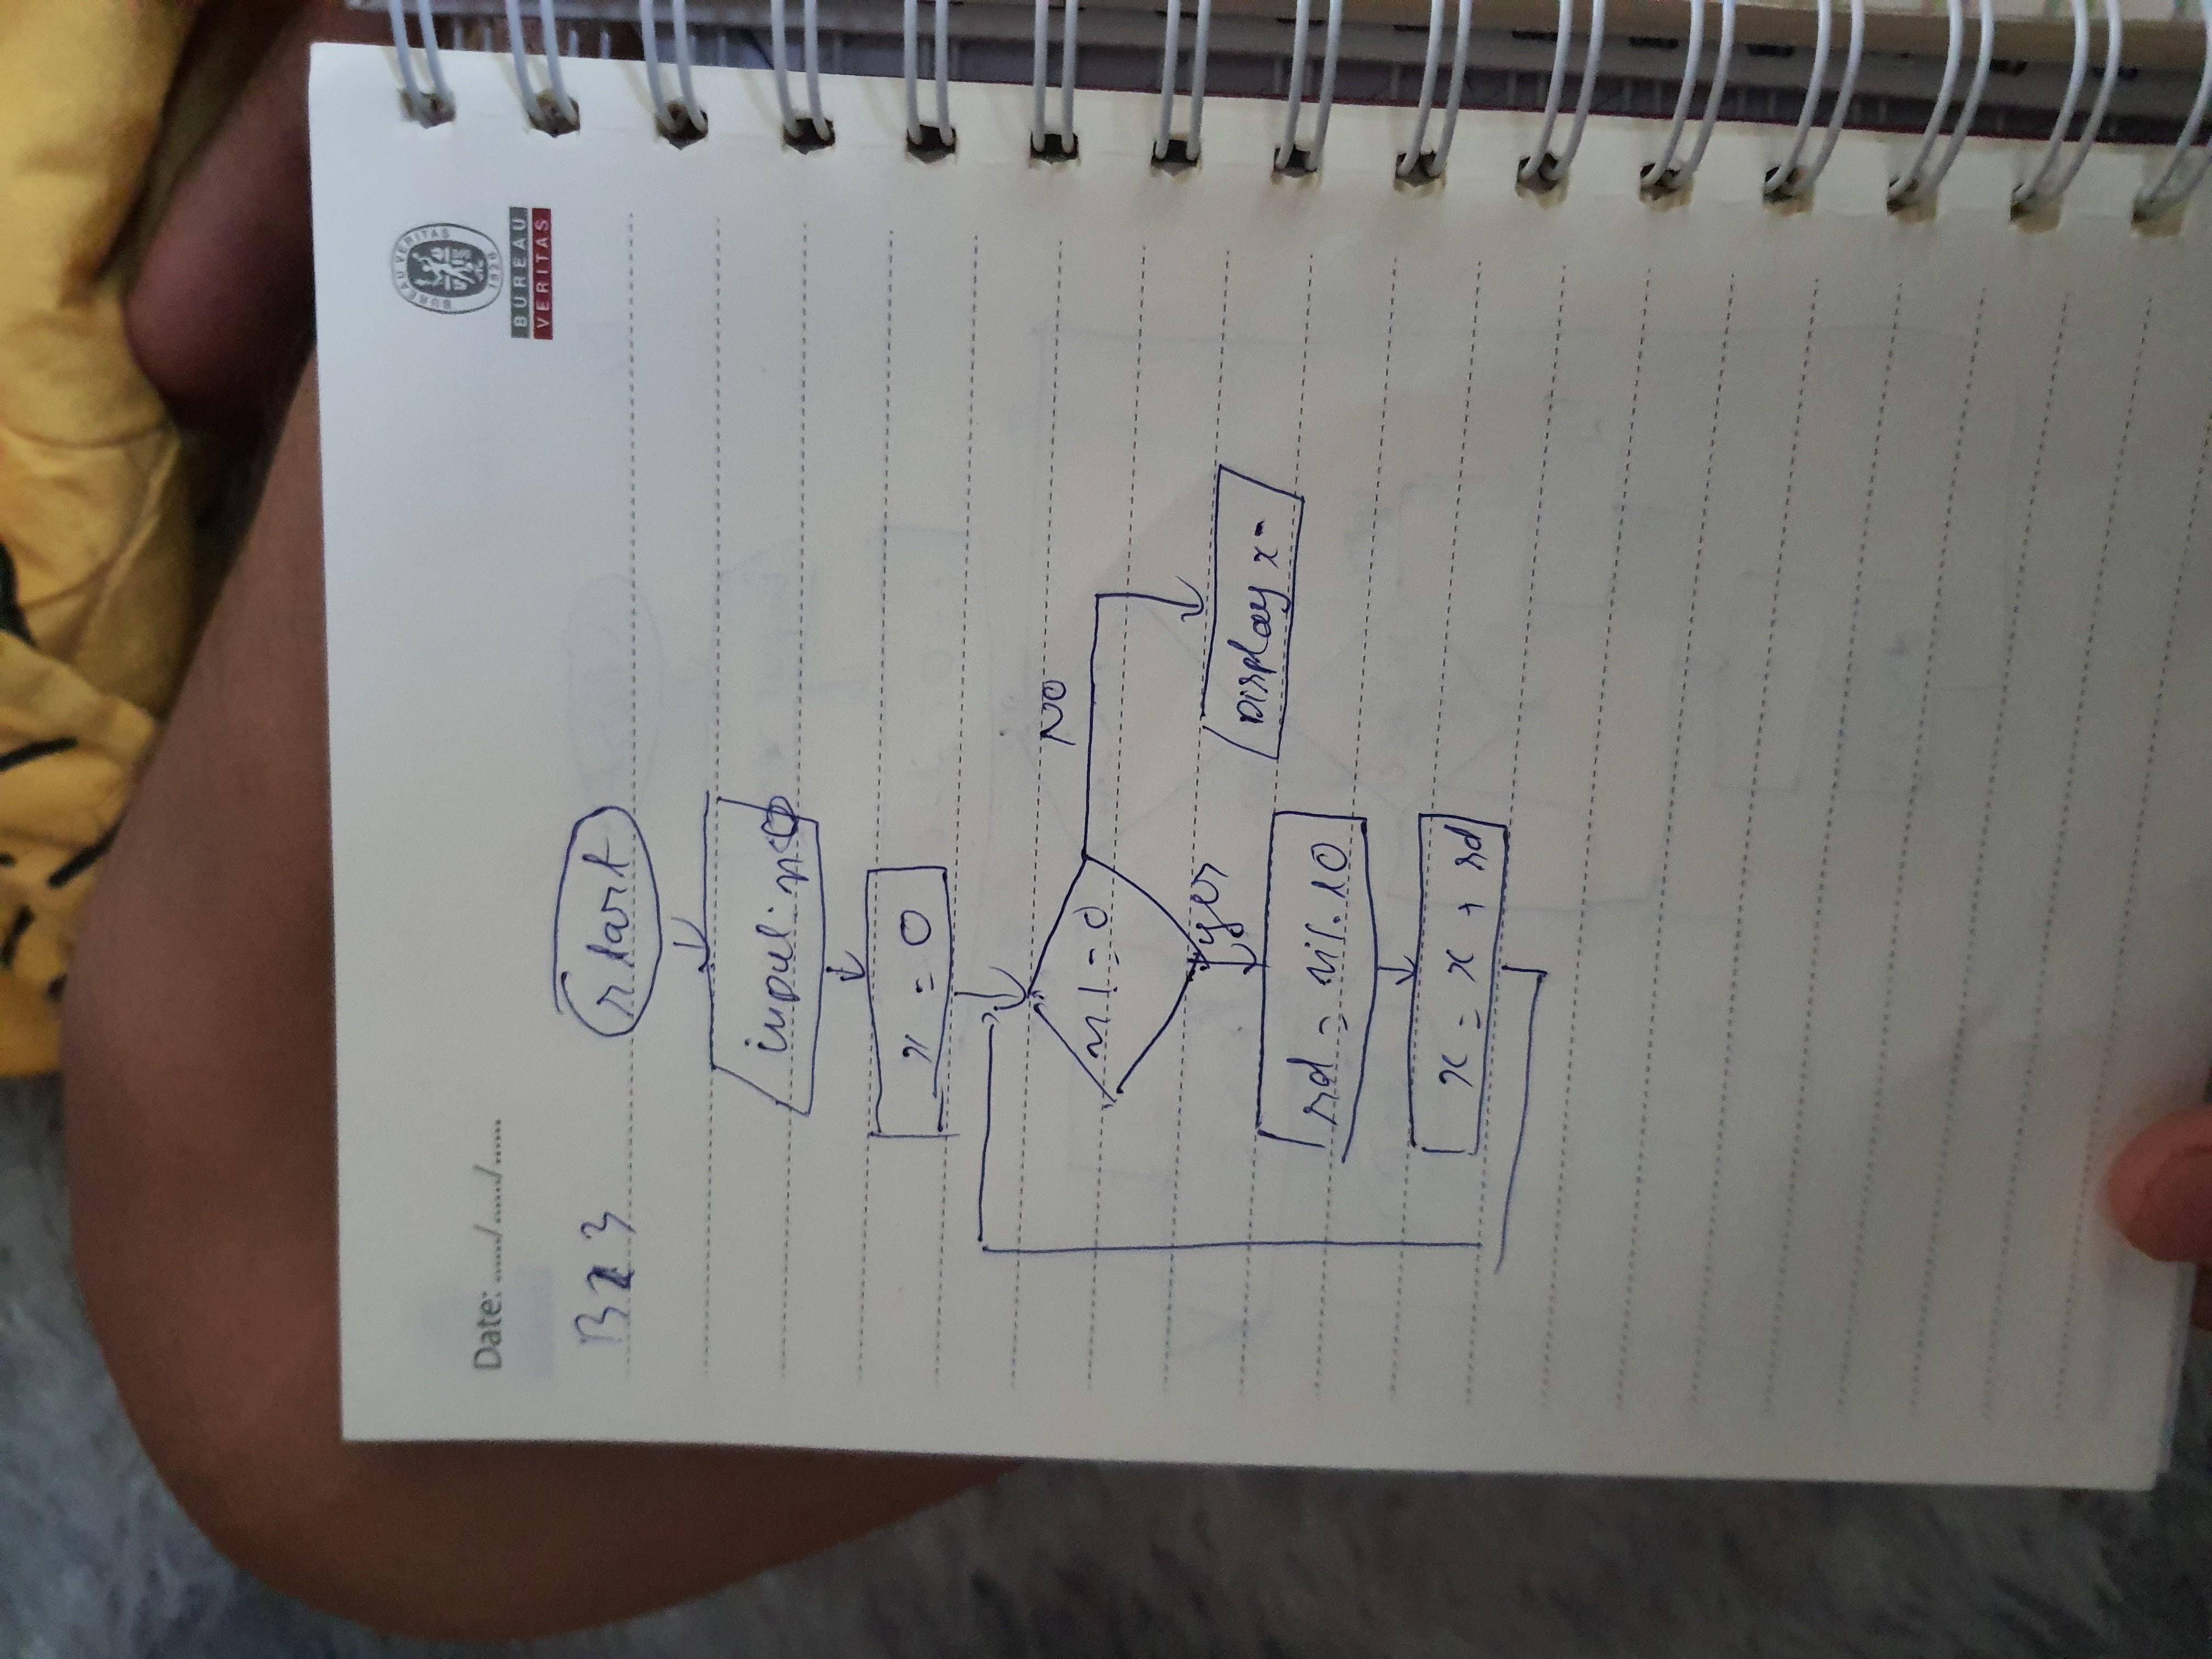 Date: ....../....../......
BUREAU VERITAS
1828
BUREAU
VERITAS
B 3
start
input: n
x = 0
n != 0
NO
yes
Display x =
rd = n % 10
x = x + rd